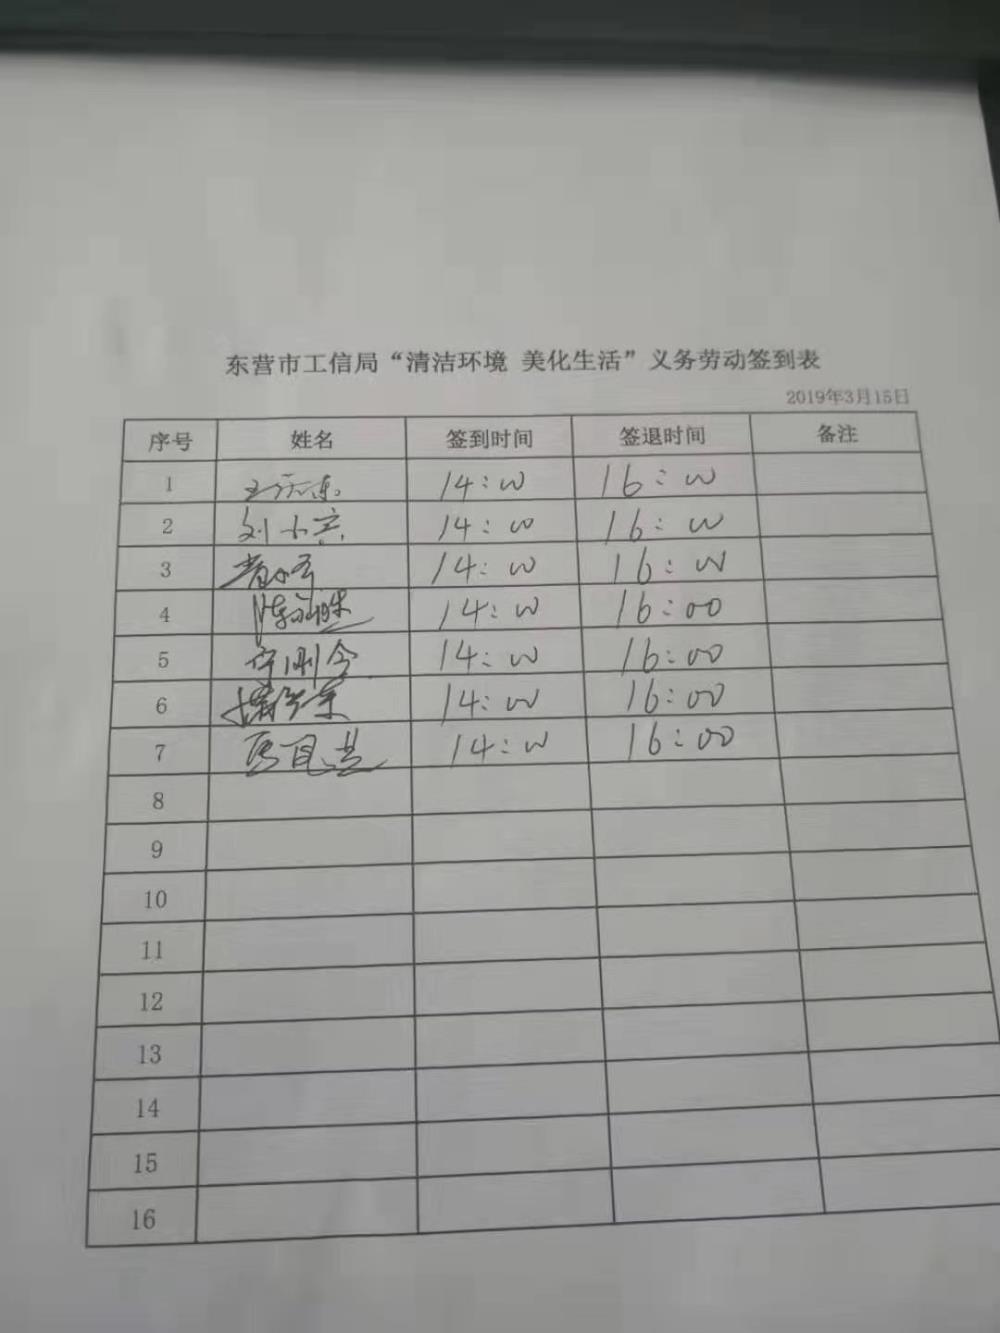 东营市工信局“清洁环境 美化生活”义务劳动签到表
2019年3月15日
序号 姓名 签到时间 签退时间 备注
1 14:00 16:00
2 刘小 14:00 16:00
3 14:00 16:00
4 陈 14:00 16:00
5 14:00 16:00
6 14:00 16:00
7 14:00 16:00
8
9
10
11
12
13
14
15
16